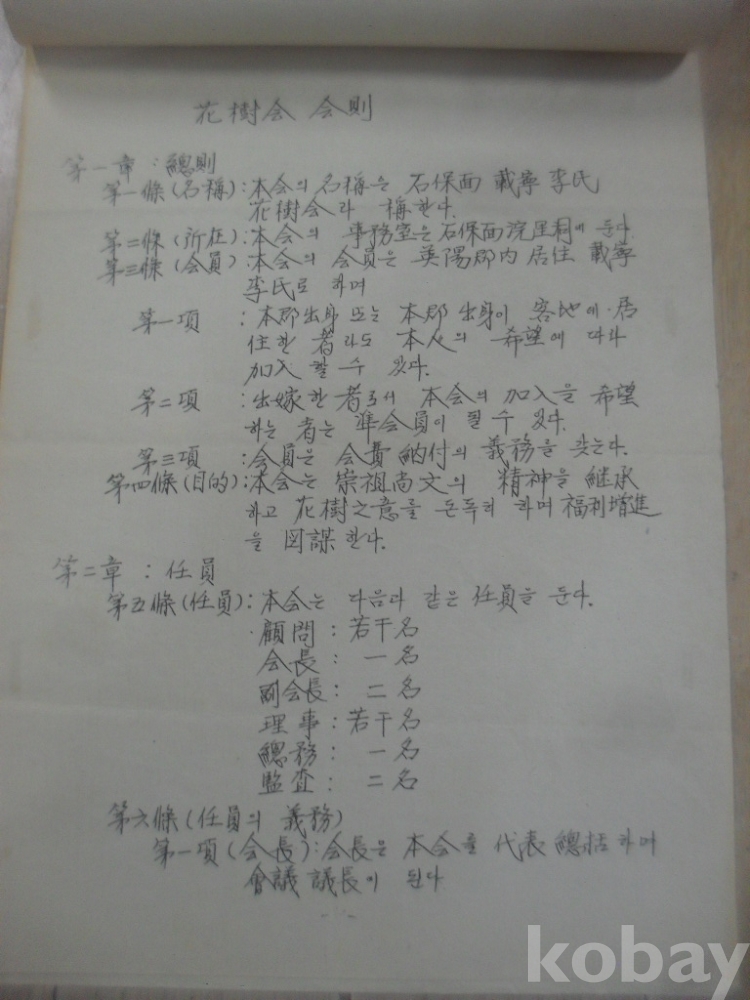 花樹会 会則
第一章 : 總則
第一條(名稱):本会의 名稱은 石保面 載寧 李氏
花樹会라 稱한다.
第二條(所在):本会의 事務室은 石保面 院里洞에 둔다.
第三條(会員):本会의 会員은 英陽郡内 居住 載寧
李氏로 하며
第一項 :本郡出身 또는 本郡 出身이 客地에 居
住한 者라도 本人의 希望에 따라
加入 할 수 있다.
第二項 :出嫁한 者로서 本会의 加入을 希望
하는 者는 準会員이 될 수 있다.
第三項 :会員은 会費 納付의 義務를 갖는다.
第四條(目的):本会는 崇祖尚文의 精神을 継承
하고 花樹之意를 돈독히 하며 福利增進
을 図謀한다.
第二章 : 任員
第五條(任員):本会는 다음과 같은 任員을 둔다.
顧問 : 若干名
会長 : 一名
副会長 : 二名
理事 : 若干名
總務 : 一名
監査 : 二名
第六條(任員의 義務)
第一項(会長):会長은 本会를 代表 總括하며
會議 議長이 된다
kobay